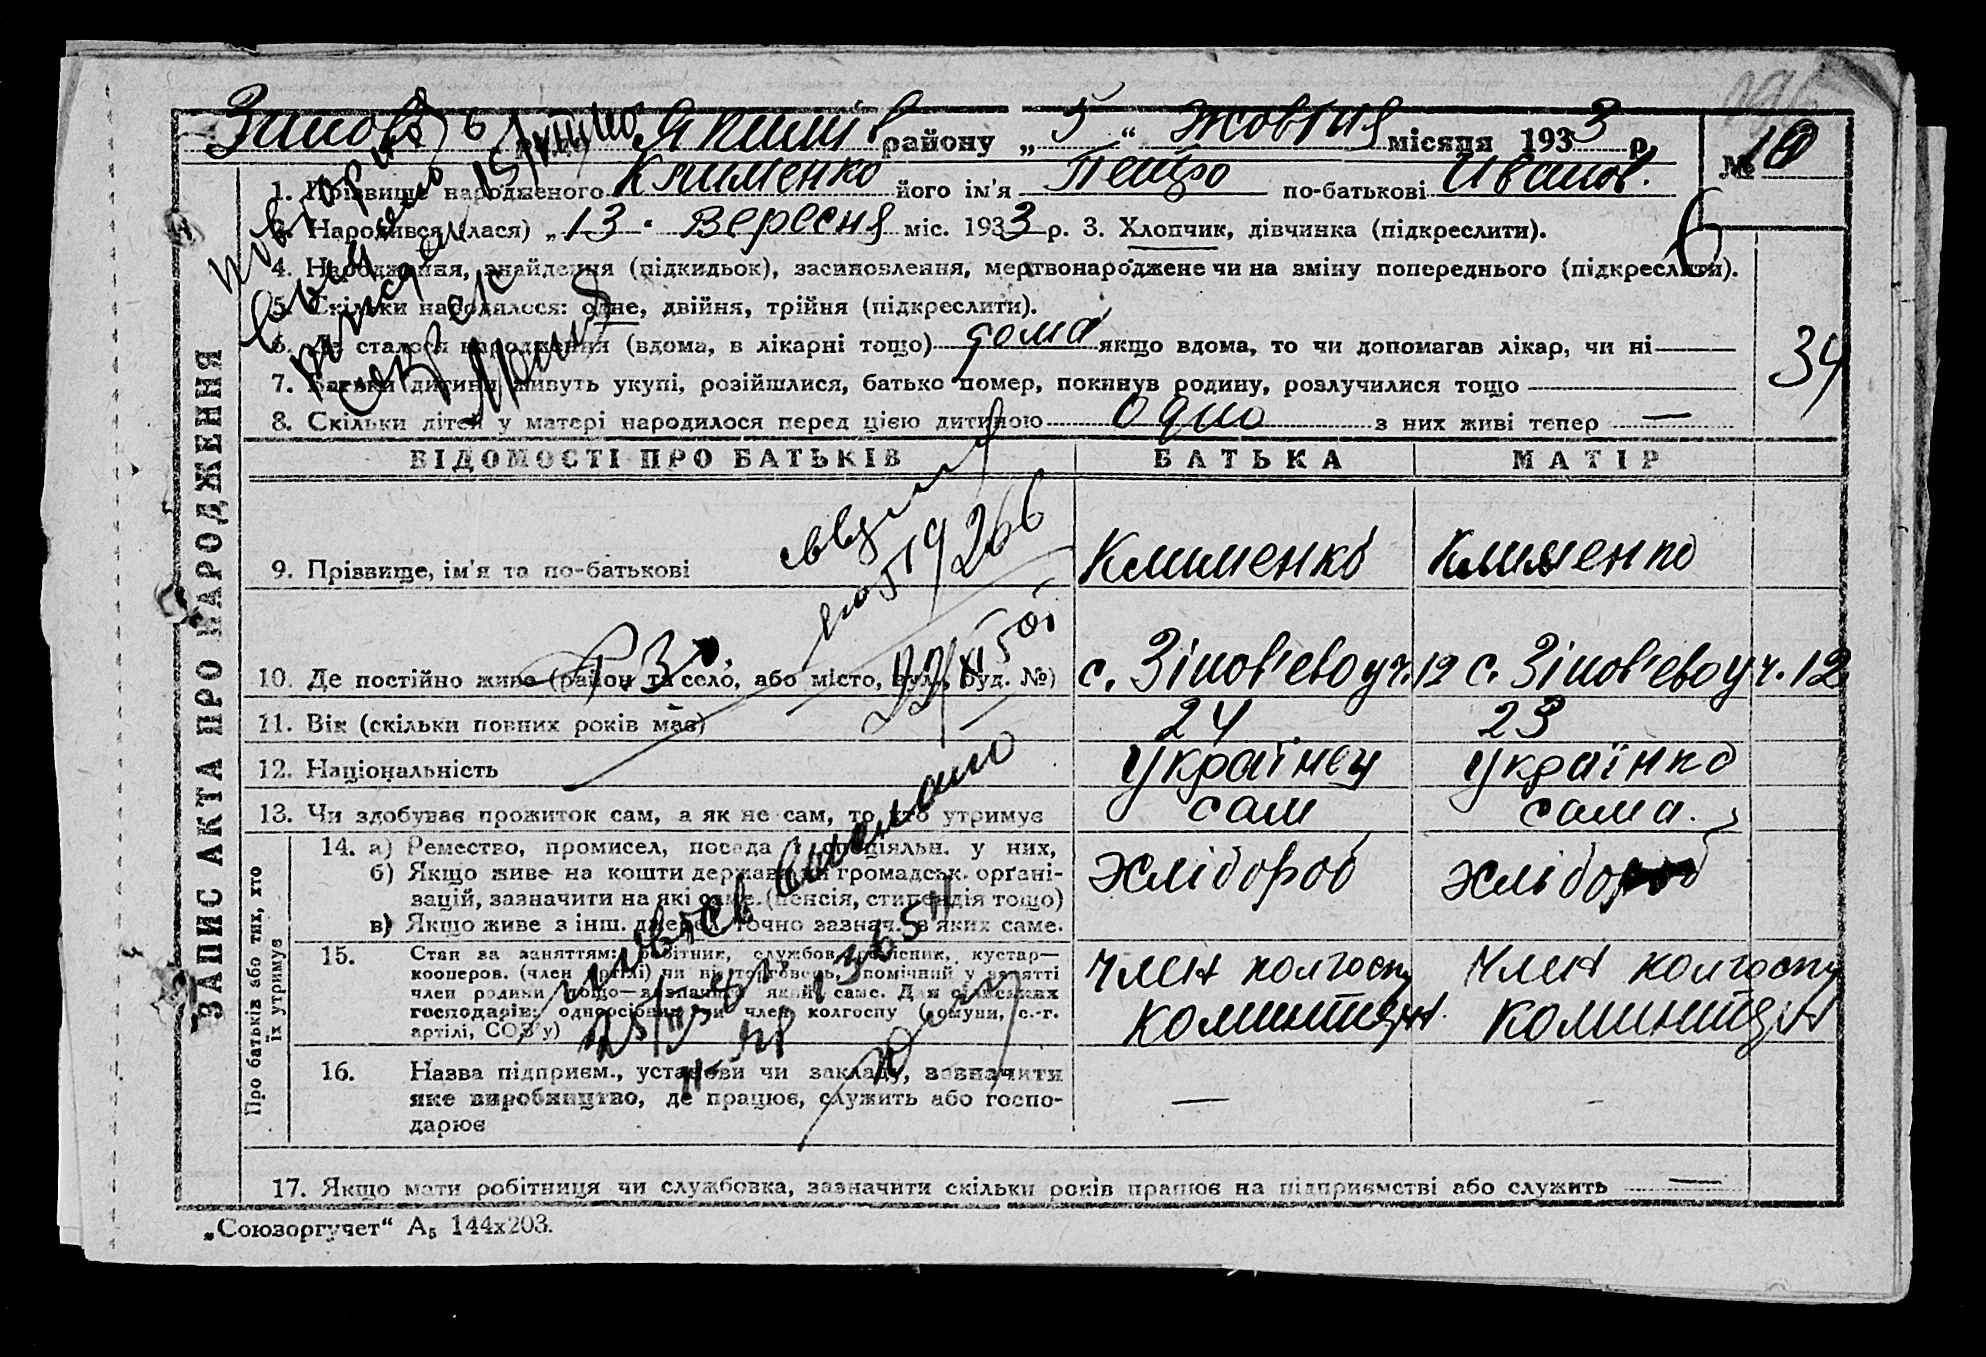 Якимів району „ 5 “ жовтня місяця 1933 р. № 10
1. Прізвище народженого Клименко його ім'я Петро по-батькові Иванов.
2. Народився (лася) „13. Вересня міс. 1933 р. 3. Хлопчик, дівчинка (підкреслити).
4. Народження, знайдення (підкидьок), засиновлення, мертвонароджене чи на зміну попереднього (підкреслити).
5. Скільки народилося: одне, двійня, трійня (підкреслити).
6. Де сталося народження (вдома, в лікарні тощо) дома якщо вдома, то чи допомагав лікар, чи ні —
34
7. Батьки дитини живуть укупі, розійшлися, батько помер, покинув родину, розлучилися тощо —
8. Скільки дітей у матері народилося перед цією дитиною одно з них живі тепер —
ЗАПИС АКТА ПРО НАРОДЖЕННЯ
ВІДОМОСТІ ПРО БАТЬКІВ БАТЬКА МАТІР
9. Прізвище, ім'я та по-батькові Клименко Клименко
10. Де постійно живе (район та село, або місто, вул., буд. №) с. Зінов'ево уч. 12 с. Зінов'ево уч. 12
11. Вік (скільки повних років має) 24 23
12. Національність Українец Українка
13. Чи здобуває прожиток сам, а як не сам, то хто утримує сам сама.
Про батьків або тих, хто їх утримує
14. а) Ремество, промисел, посада і спеціяльн. у них, хлібороб хлібороб
б) Якщо живе на кошти держави чи громадськ. орґані-
зацій, зазначити на які саме (пенсія, стипендія тощо)
в) Якщо живе з інш. джерел, точно зазнач. з яких саме.
15. Стан за заняттям: робітник, службовець, кустар—
кооперов. (член артілі) чи ні, торговець, помічний у занятті
член родини тощо—зазначити який саме. Для сільських
господарів: одноосібник чи член колгоспу (комуни, с.-г.
артілі, СОЗ'у) член колгоспу Коминтерн. член колгоспу Коминтерн
16. Назва підприєм., установи чи закладу, зазначити — -
яке виробництво, де працює, служить або госпо-
дарює
17. Якщо мати робітниця чи службовка, зазначити скільки років працює на підприємстві або служить —
„Союзоргучет“ А₅ 144х203.